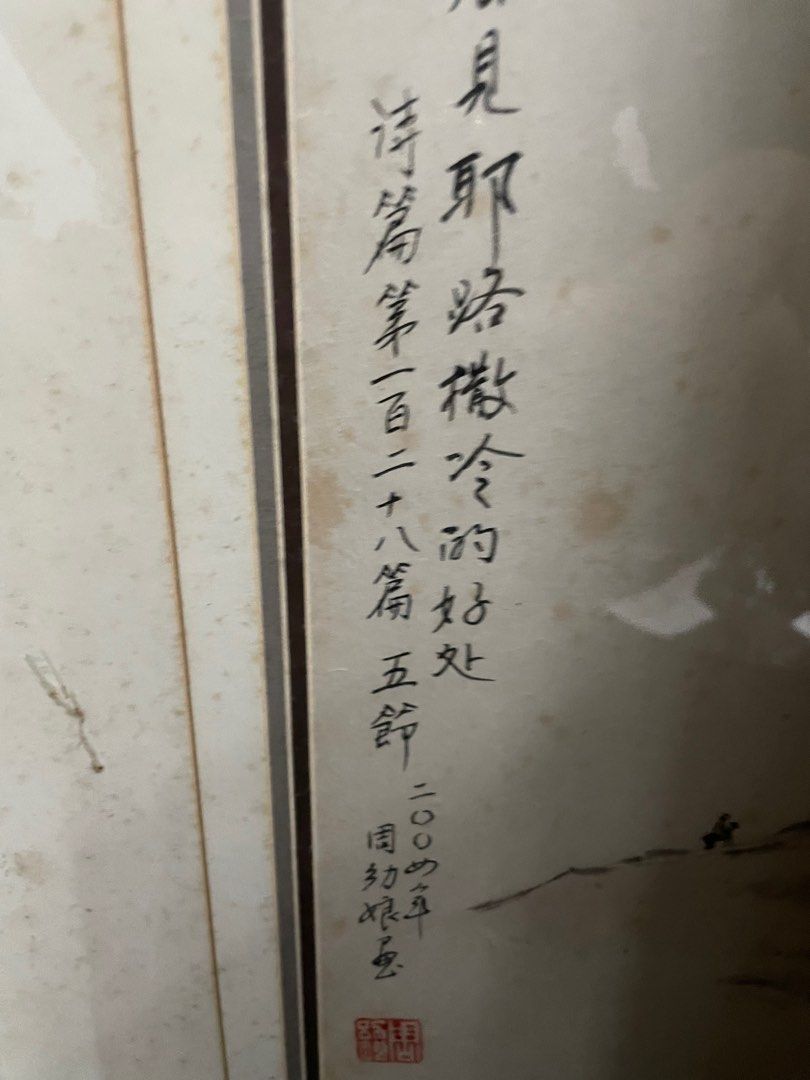 見耶路撒冷的好处
诗篇第一百二十八篇五節
二〇〇四年
周幼娘画